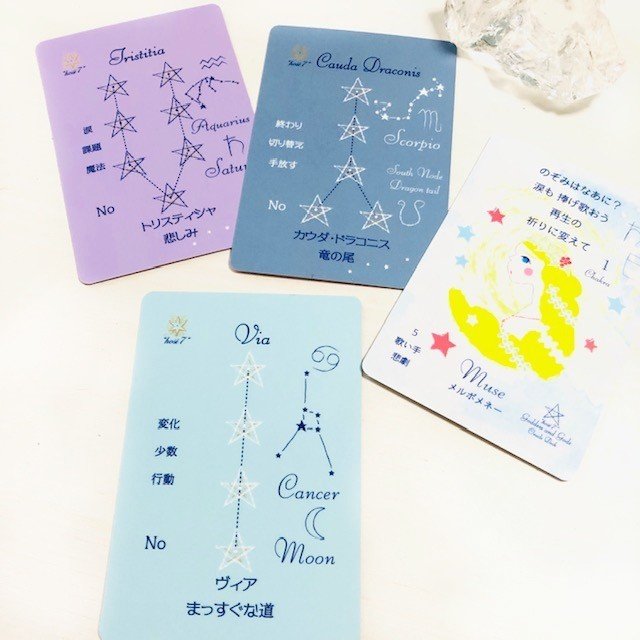 Tristitia
"hosi 7"
涙
課題
魔法
Aquarius
Satur
No
トリスティシャ
悲しみ
Cauda Draconis
"hosi 7"
終わり
切り替え
手放す
Scorpio
South Node
Dragon tail
No
カウダ・ドラコニス
竜の尾
のぞみはなあに？
涙も 捧げ歌おう
再生の
祈りに変えて
1
Chakra
5
歌い手
悲劇
Muse
メルポメネー
"hosi 7"
Goddess and Gods
Oracle Deck
Via
"hosi 7"
変化
少数
行動
Cancer
No
Moon
ヴィア
まっすぐな道